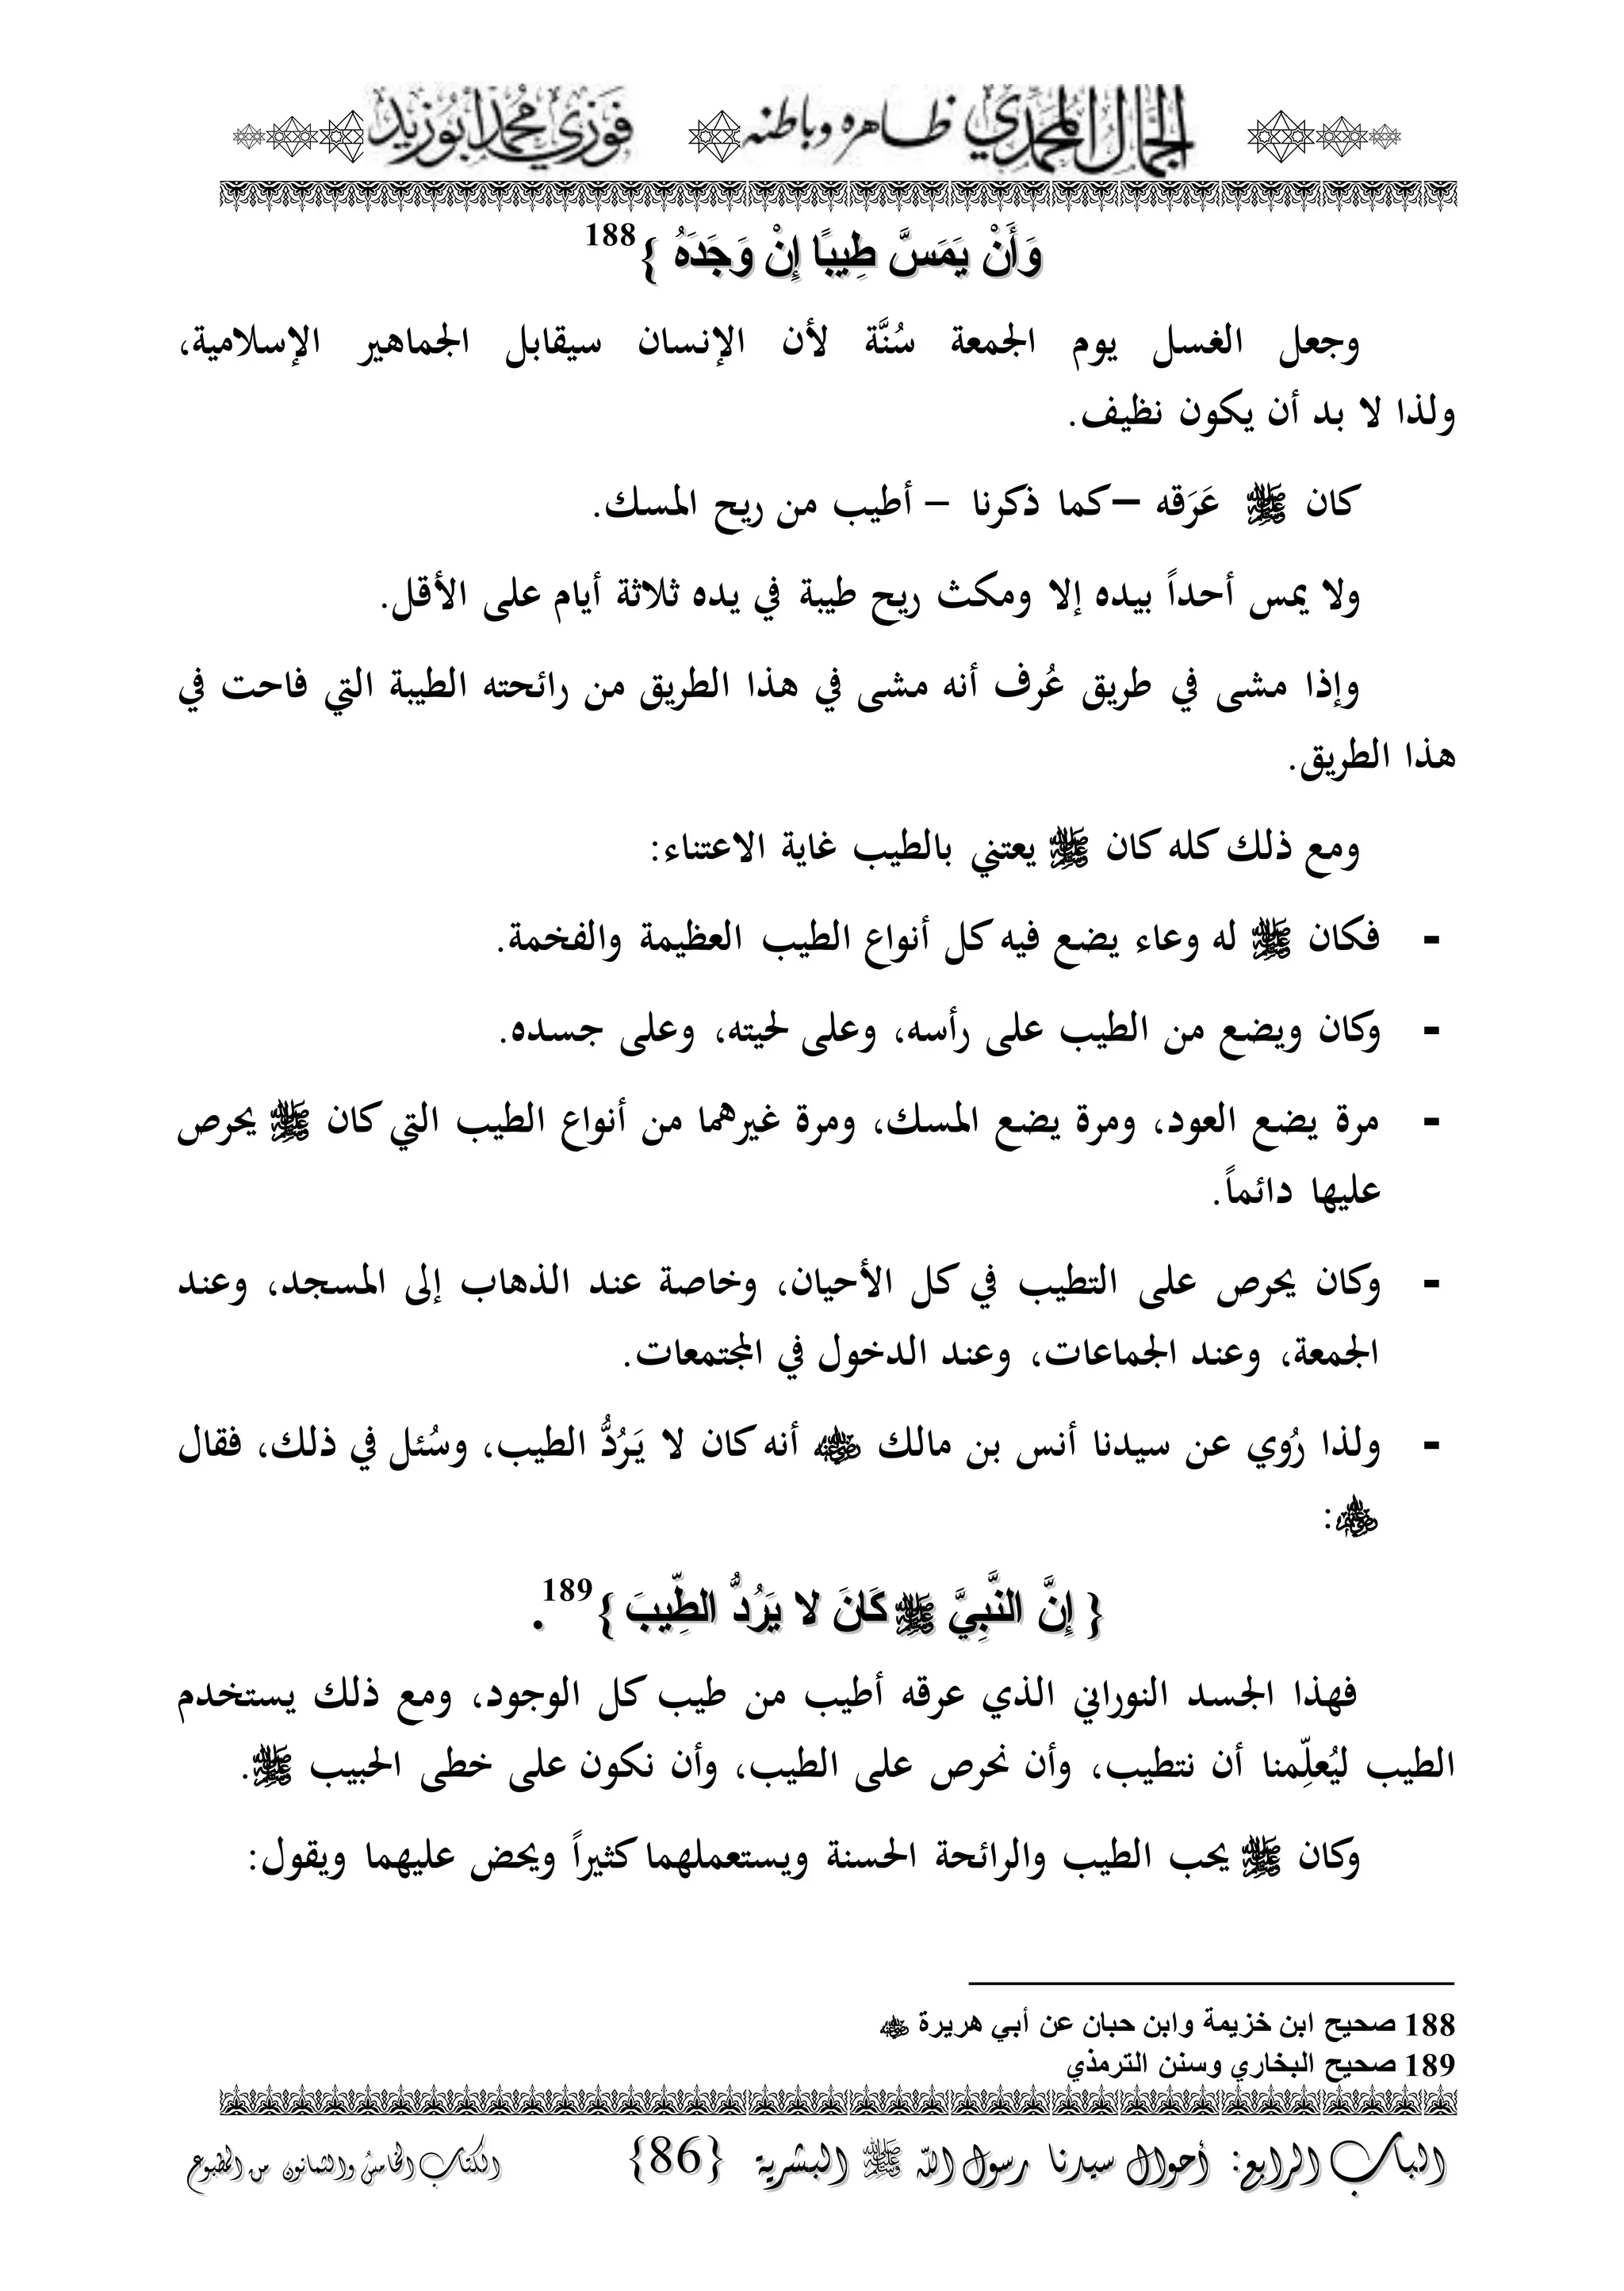 الجمال المحمدي ظاهره وباطنه فوزي محمد أبوزيد
وَأَنْ يَمَسَّ طِيبًا إِنْ وَجَدَهُ } 188
وجعل الغسل يوم الجمعة سُنَّة لأن الإنسان سيقابل الجماهير الإسلامية،
ولذا لا بد أن يكون نظيف.
كان ﷺ عَرَقه – كما ذكرنا – أطيب من ريح المسك.
ولا يمس أحداً بيده إلا ومكث ريح طيبة في يده ثلاثة أيام على الأقل.
وإذا مشى في طريق عُرف أنه مشى في هذا الطريق من رائحته الطيبة التي فاحت في
هذا الطريق.
ومع ذلك كله كان ﷺ يعتني بالطيب غاية الاعتناء:
- فكان ﷺ له وعاء يضع فيه كل أنواع الطيب العظيمة والفخمة.
- وكان ويضع من الطيب على رأسه، وعلى لحيته، وعلى جسده.
- مرة يضع العود، ومرة يضع المسك، ومرة غيرهما من أنواع الطيب التي كان ﷺ يحرص
عليها دائماً.
- وكان يحرص على التطيب في كل الأحيان، وخاصة عند الذهاب إلى المسجد، وعند
الجمعة، وعند الجماعات، وعند الدخول في المجتمعات.
- ولذا رُوي عن سيدنا أنس بن مالك رضي الله عنه أنه كان لا يَرُدُّ الطيب، وسُئل في ذلك، فقال
رضي الله عنه:
{ إِنَّ النَّبِيَّ ﷺ كَانَ لا يَرُدُّ الطِّيبَ } 189.
فهذا الجسد النوراني الذي عرقه أطيب من طيب كل الوجود، ومع ذلك يستخدم
الطيب ليُعلِّمنا أن نتطيب، وأن نحرص على الطيب، وأن نكون على خطى الحبيب ﷺ.
وكان ﷺ يحب الطيب والرائحة الحسنة ويستعملهما كثيراً ويحض عليهما ويقول:
188 صحيح ابن خزيمة وابن حبان عن أبي هريرة رضي الله عنه
189 صحيح البخاري وسنن الترمذي
الباب الرابع: أحوال سيدنا رسول الله ﷺ البشرية {86} الكتاب الخامس والثمانون من المطبوع